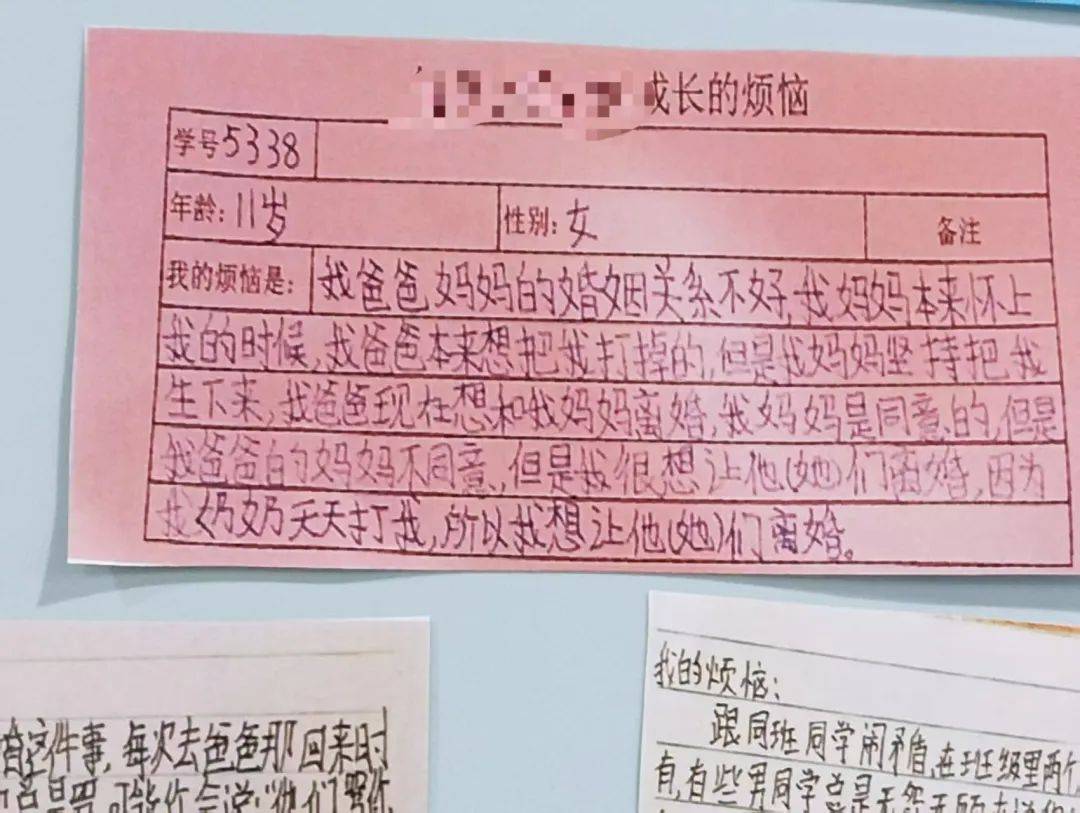 成长的烦恼
学号5338
年龄:11岁 性别:女 备注
我的烦恼是: 我爸爸妈妈的婚姻关系不好,我妈妈本来怀上
我的时候,我爸爸本来想把我打掉的,但是我妈妈坚持把我
生下来,我爸爸现在想和我妈妈离婚,我妈妈是同意的,但是
我爸爸的妈妈不同意,但是我很想让他(她)们离婚,因为
我奶奶天天打我,所以我想让他(她)们离婚。
这件事,每次去爸爸那回来时
我的烦恼:
跟同班同学闹矛盾,在班级里两个
有,有些男同学总是无怨无顾